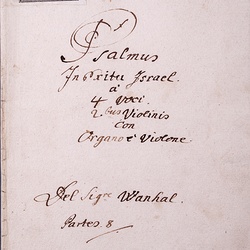 Psalmus
In Exitu Israel.
à
4 Voci.
2bus Violinis
con
Organo è Violone
Del Sigre Wanhal.
Partes. 8